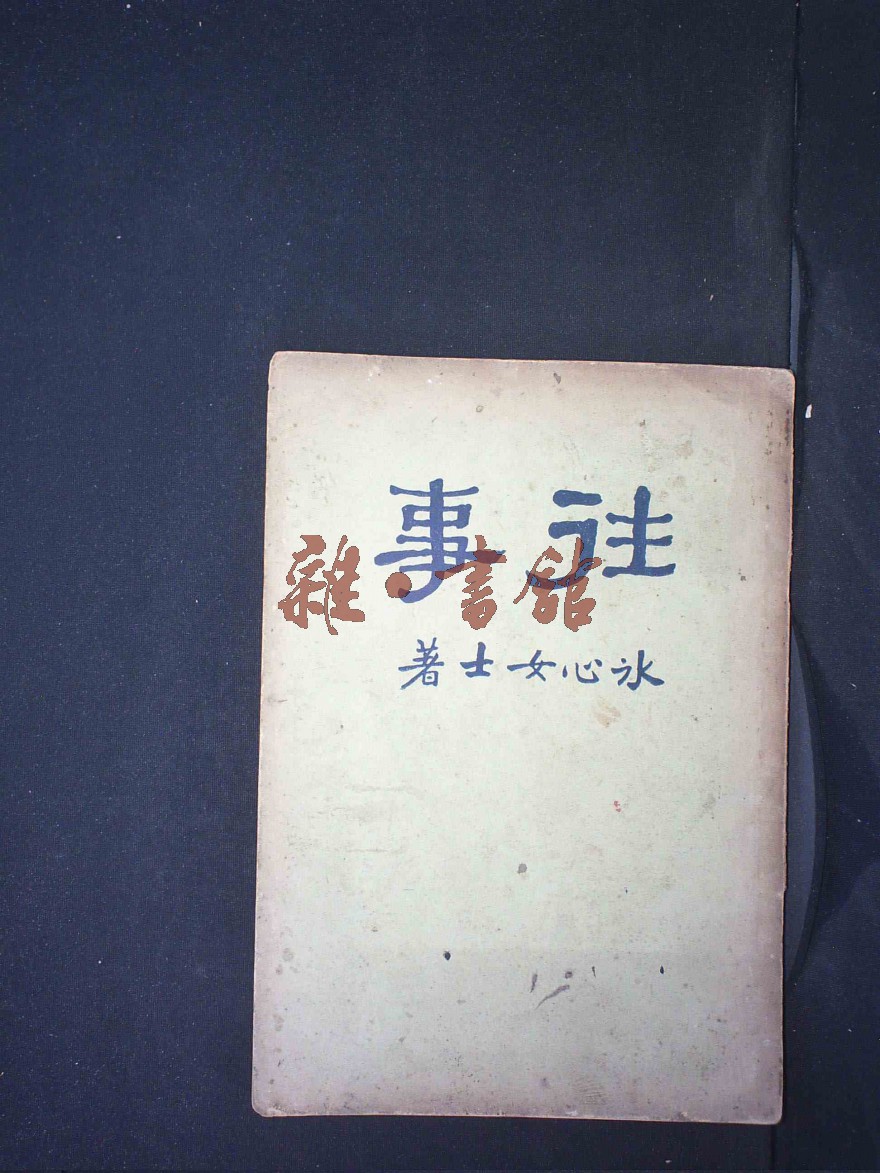 往事
雜·書館
冰心女士著